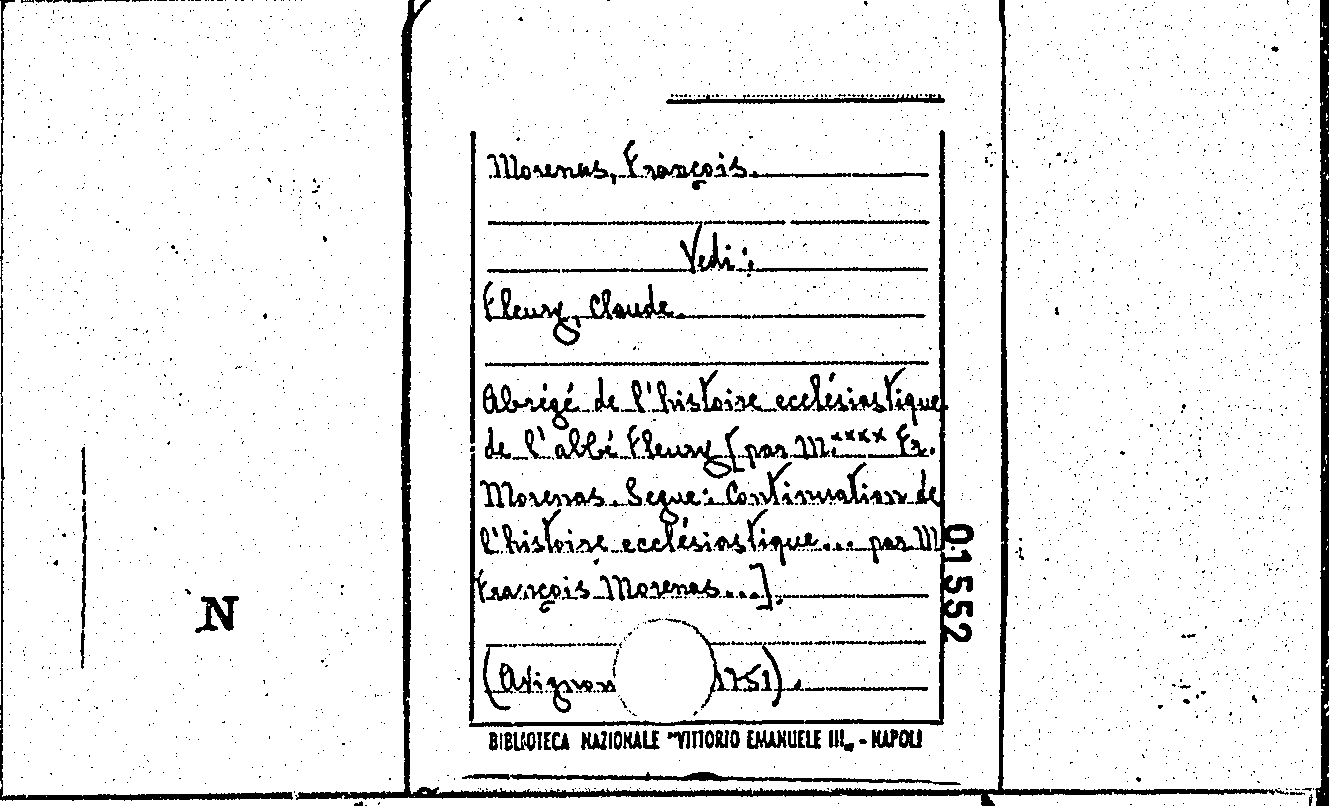 Morenas, François.
Vedi:
Fleury, Claude.
Abrégé de l'histoire ecclésiastique
de l'abbé Fleury [par M.**** Fr.
Morenas. Segue: Continuation de
l'histoire ecclésiastique... par M
François Morenas...].
(Avignon 1751).
BIBLIOTECA NAZIONALE "VITTORIO EMANUELE III„ - NAPOLI
01552
N